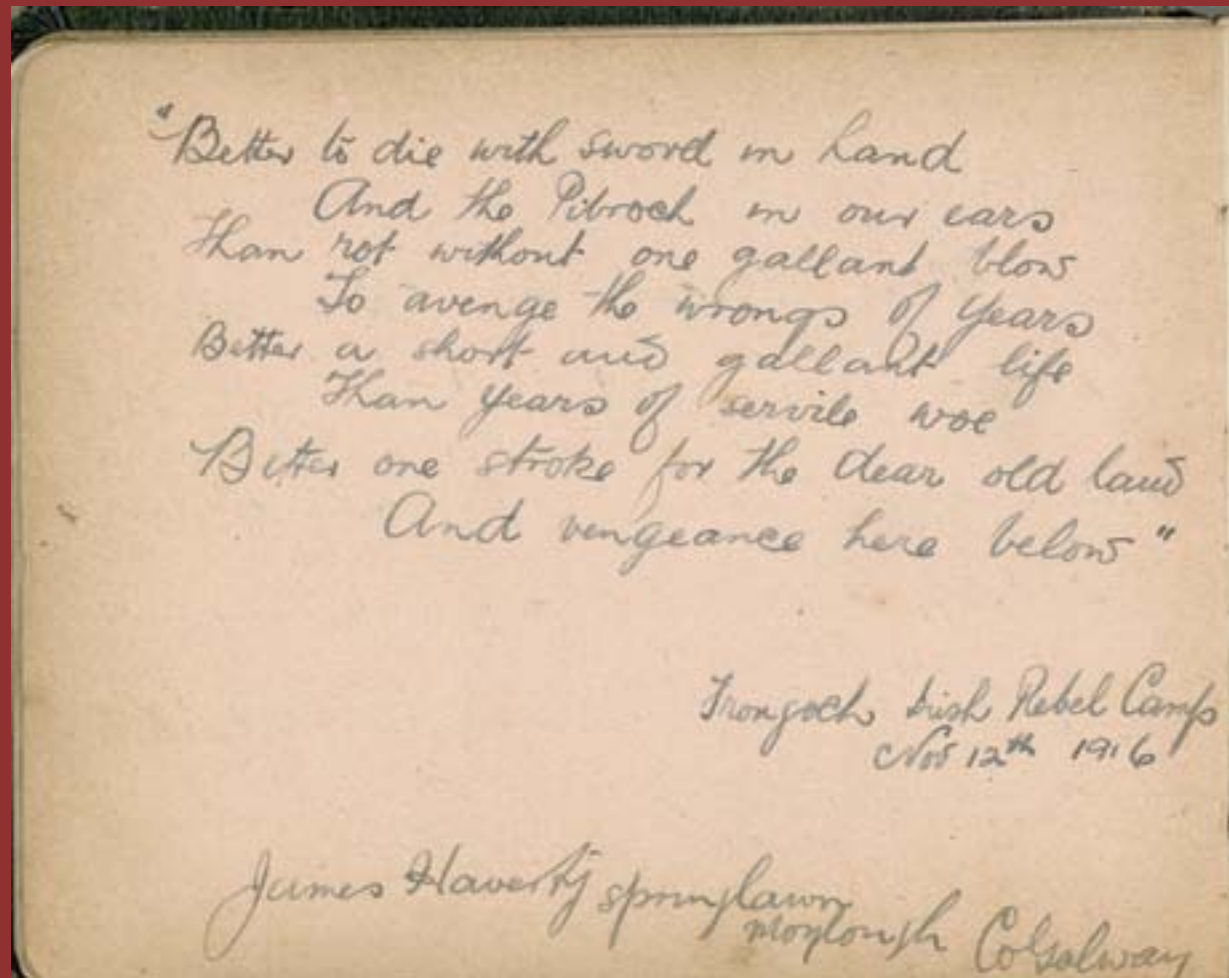 "Better to die with sword in hand
And the Pibroch in our ears
Than rot without one gallant blow
To avenge the wrongs of years
Better a short and gallant life
Than years of servile woe
Better one stroke for the dear old land
And vengeance here below"
Frongoch Irish Rebel Camp
Nov 12th 1916
James Haverty springlawn
Moylough Co Galway